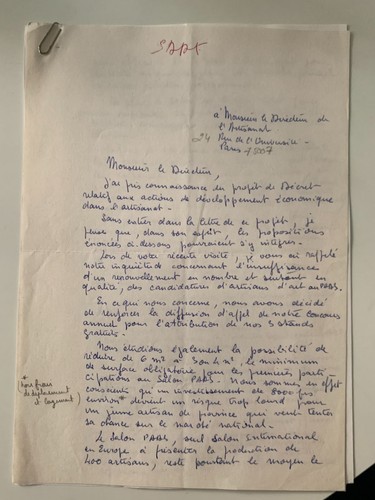 SAPT
à Monsieur le Directeur de
l'Artisanat
24 Rue de l'Université -
Paris 7507
Monsieur le Directeur,
J'ai pris connaissance du projet de Décret
relatif aux actions de développement économique
dans l'artisanat -
Sans entrer dans la lettre de ce projet, je
pense que, dans son esprit, les propositions
énoncées ci-dessous pourraient s'y intégrer -
Lors de votre récente visite, je vous ai rappelé
notre inquiétude concernant l'insuffisance
d'un renouvellement en nombre et surtout en
qualité, des candidatures d'artisans d'art au PABS.
En ce qui nous concerne, nous avons décidé
de renforcer la diffusion d'appel de notre concours
annuel pour l'attribution de nos 3 stands
gratuits -
Nous étudions également la possibilité de
réduire de 6 m² à 5 ou 4 m², le minimum
de surface obligatoire pour les premières parti-
cipations au Salon PABS. Nous sommes en effet
conscients qu'un investissement de 8000 frs
environ* devient un risque trop lourd pour
un jeune artisan de province qui veut tenter
sa chance sur le marché national -
* hors frais
de déplacement
& logement
Le Salon PABS, seul Salon International
en Europe à présenter la production de
400 artisans, reste pourtant le moyen le